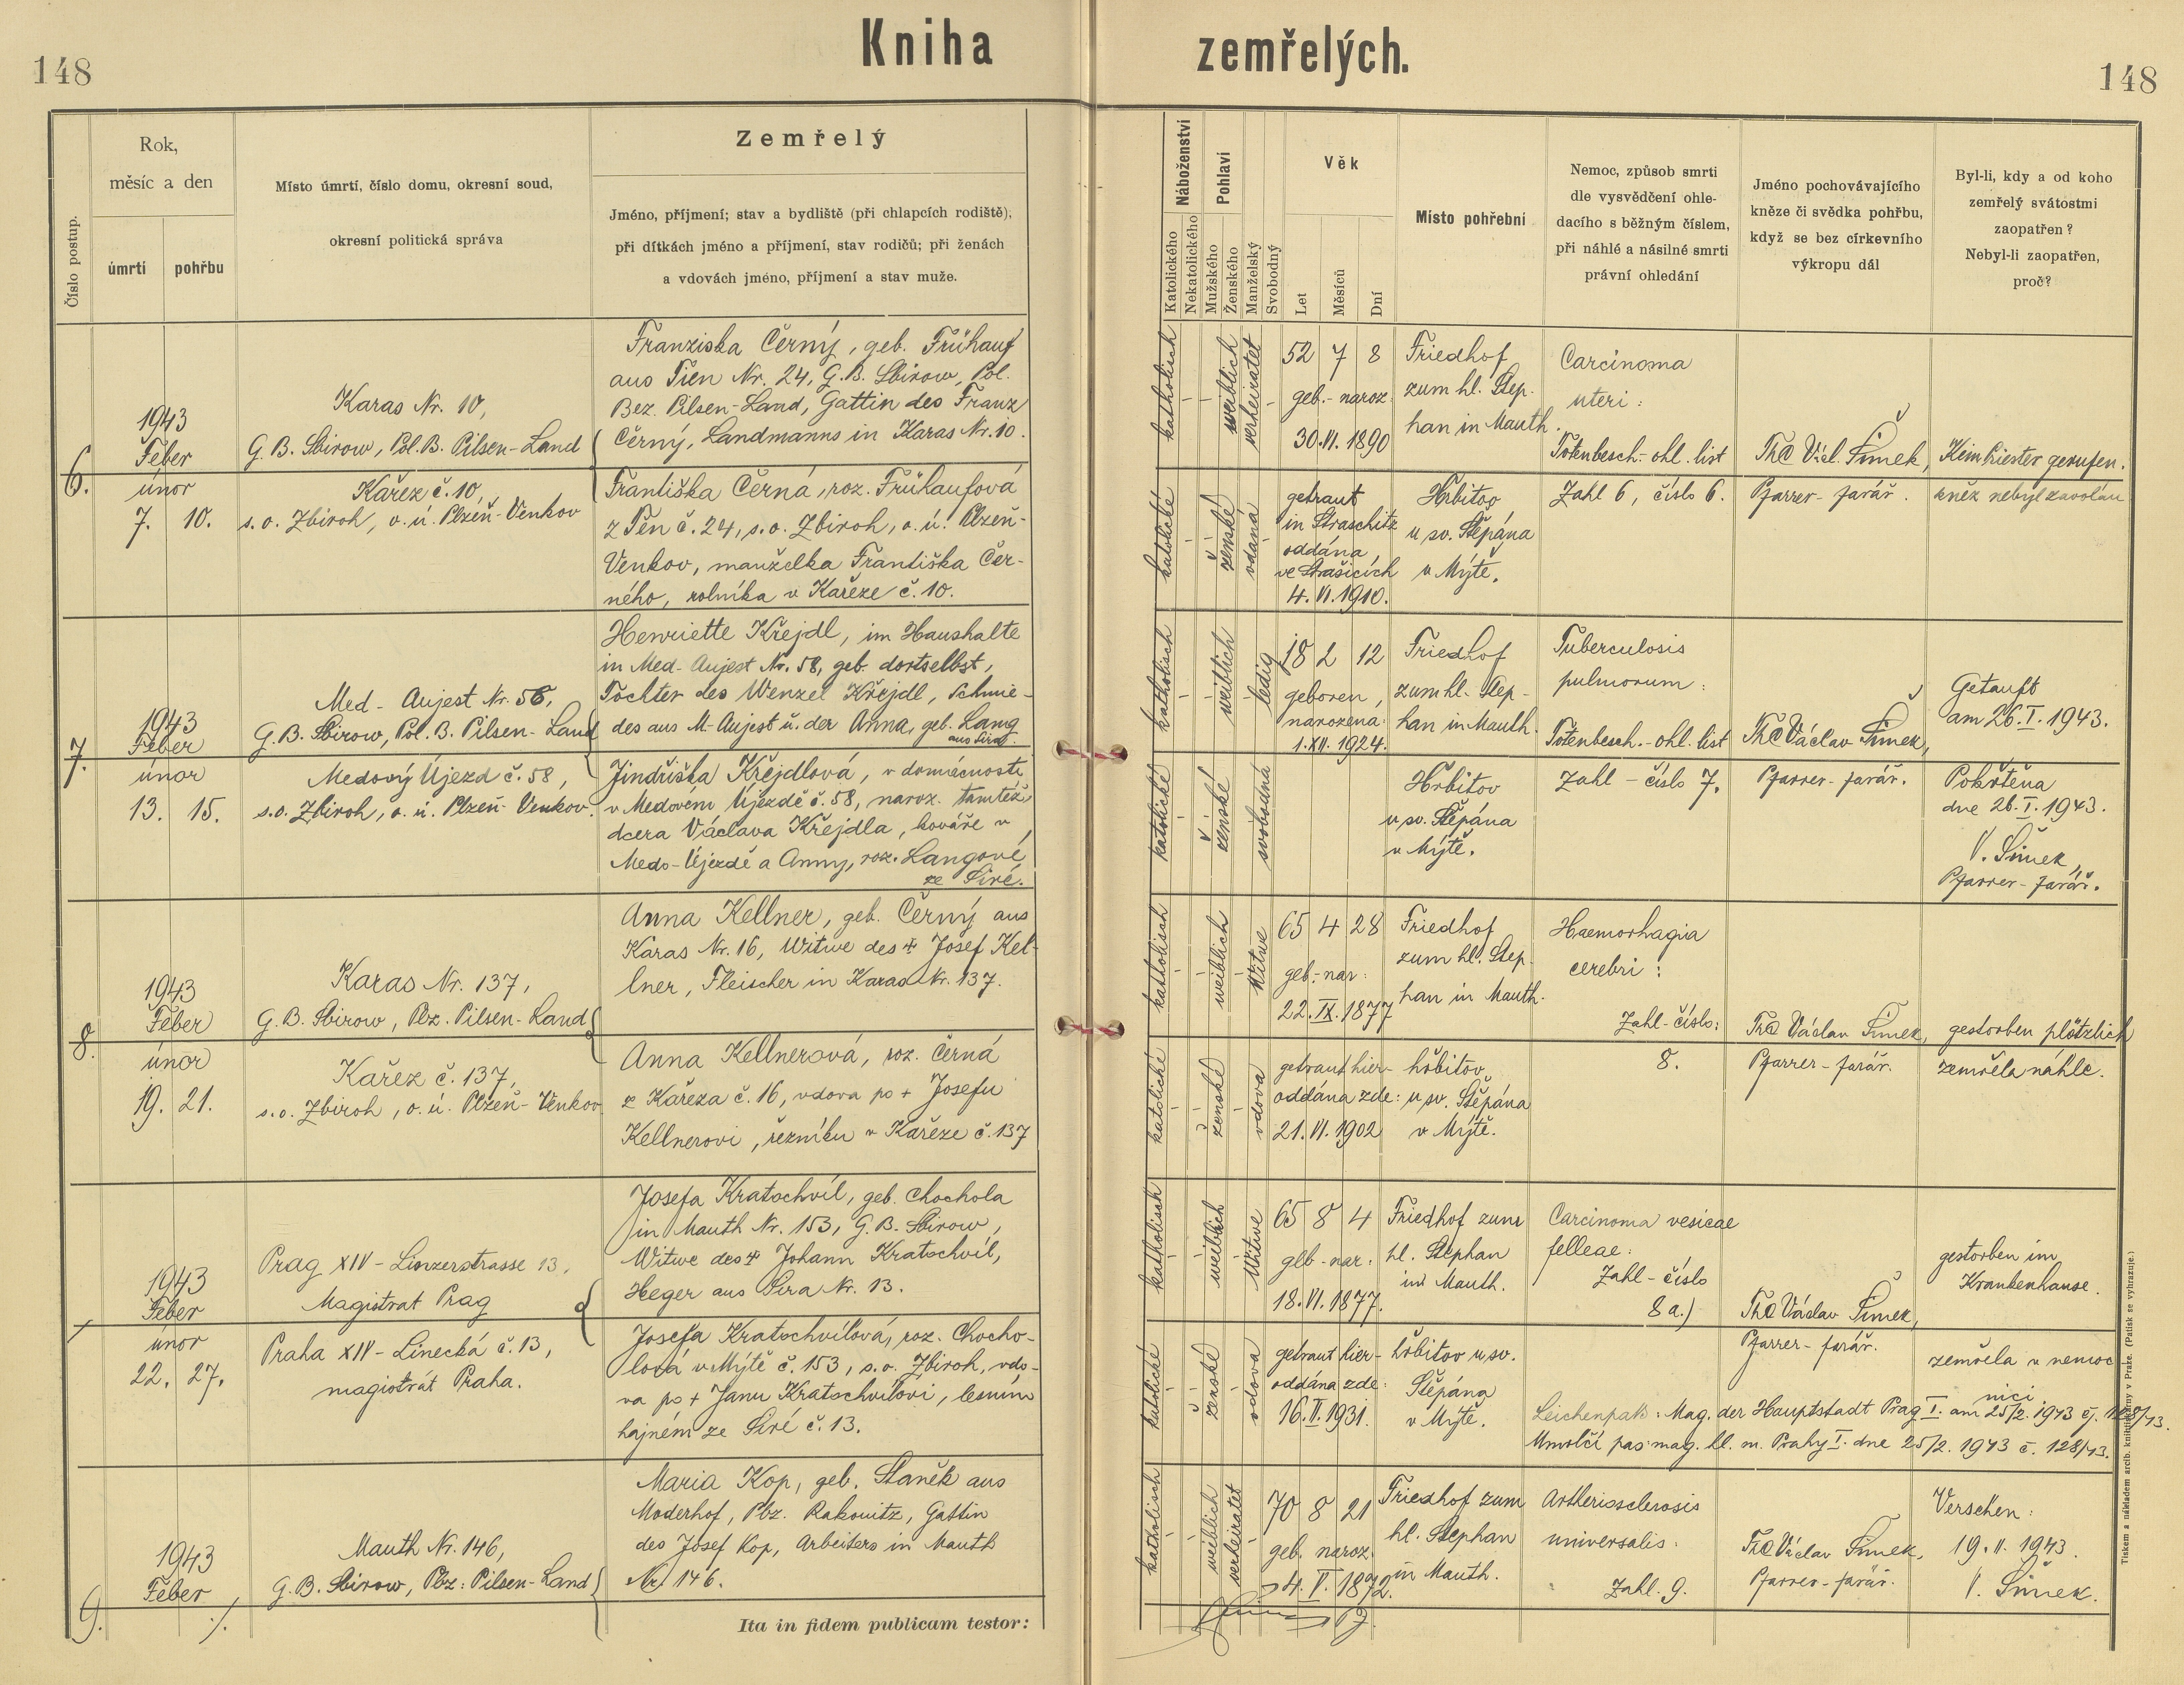 148
Kniha zemřelých.
148
Číslo postup.
Rok,
měsíc a den
úmrtí
pohřbu
Místo úmrtí, číslo domu, okresní soud,
okresní politická správa
Zemřelý
Jméno, příjmení; stav a bydliště (při chlapcích rodiště),
při dítkách jméno a příjmení, stav rodičů; při ženách
a vdovách jméno, příjmení a stav muže.
Náboženství
Katolického
Nekatolického
Pohlaví
Mužského
Ženského
Manželský
Svobodný
Věk
Let
Měsíců
Dní
Místo pohřební
Nemoc, způsob smrti
dle vysvědčení ohle-
dacího s běžným číslem,
při náhlé a násilné smrti
právní ohledání
Jméno pochovávajícího
kněze či svědka pohřbu,
když se bez církevního
výkropu dál
Byl-li, kdy a od koho
zemřelý svátostmi
zaopatřen?
Nebyl-li zaopatřen,
proč?
6.
1943
Feber
únor
7. 10.
Karas Nr. 10,
G. B. Sbirow, Pol. B. Pilsen-Land
Kařez č. 10,
s. o. Zbiroh, o. ú. Plzeň-Venkov
Franziska Černý, geb. Frühauf
aus Tien Nr. 24, G. B. Sbirow, Pol.
Bez. Pilsen-Land, Gattin des Franz
Černý, Landmanns in Karas Nr. 10.
Františka Černá, roz. Frühaufová
z Těn č. 24, s. o. Zbiroh, o. ú. Plzeň-
Venkov, manželka Františka Čer-
ného, rolníka v Kařeze č. 10.
katholisch
katolické
weiblich
ženské
verheiratet
vdaná
52 7 8
geb. - naroz.
30. VI. 1890
getraut
in Straschitz
oddána
ve Strašicích
4. VI. 1910.
Friedhof
zum hl. Step-
han in Mauth.
Hřbitov
u sv. Štěpána
v Mýtě.
Carcinoma
uteri:
Totenbesch. - ohl. list
Zahl 6, číslo 6.
Th@ Václ. Šimek,
Pfarrer - farář.
Kein Priester gerufen.
kněz nebyl zavolán
7.
1943
Feber
únor
13. 15.
Med - Aujest Nr. 58,
G. B. Sbirow, Pol. B. Pilsen-Land
Medový Újezd č. 58,
s. o. Zbiroh, o. ú. Plzeň-Venkov.
Henriette Křejdl, im Haushalte
in Med-Aujest Nr. 58, geb. dortselbst,
Tochter des Wenzel Křejdl, Schmie-
des aus M-Aujest u. der Anna, geb. Lang
aus Sira.
Jindřiška Křejdlová, v domácnosti
v Medovém Újezdě č. 58, naroz. tamtéž
dcera Václava Křejdla, kováře v
Medo-Újezdě a Anny, roz. Langové
ze Siré.
katholisch
katolické
weiblich
ženské
ledig
svobodná
18 2 12
geboren,
narozena:
1. XII. 1924.
Friedhof
zum hl. Step-
han in Mauth.
Hřbitov
u sv. Štěpána
v Mýtě.
Tuberculosis
pulmorum:
Totenbesch. - ohl. list
Zahl - číslo 7.
Th@ Václav Šimek,
Pfarrer - farář.
Getauft
am 26. I. 1943.
Pokřtěna
dne 26. I. 1943.
V. Šimek,
Pfarrer - farář.
8.
1943
Feber
únor
19. 21.
Karas Nr. 137,
G. B. Sbirow, Pbz. Pilsen-Land
Kařez č. 137,
s. o. Zbiroh, o. ú. Plzeň-Venkov
Anna Kellner, geb. Černý aus
Karas Nr. 16, Witwe des + Josef Kel-
lner, Fleischer in Karas Nr. 137.
Anna Kellnerová, roz. Černá
z Kařeza č. 16, vdova po + Josefu
Kellnerovi, řezníku v Kařeze č. 137
katholisch
katolické
weiblich
ženské
Witwe
vdova
65 4 28
geb. - nar:
22. IX. 1877
getraut hier -
oddána zde:
21. VI. 1902
Friedhof
zum hl. Step-
han in Mauth.
hřbitov
u sv. Štěpána
v Mýtě.
Haemorhagia
cerebri:
Zahl - číslo:
8.
Th@ Václav Šimek,
Pfarrer - farář.
gestorben plötzlich
zemřela náhle.
1943
Feber
únor
22. 27.
Prag XIV - Linzerstrasse 13,
Magistrat Prag
Praha XIV - Linecká č. 13,
magistrát Praha.
Josefa Kratochvíl, geb. Chochola
in Mauth Nr. 153, G. B. Sbirow,
Witwe des + Johann Kratochvíl,
Heger aus Sira Nr. 13.
Josefa Kratochvílová, roz. Chocho-
lová v Mýtě č. 153, s. o. Zbiroh, vdo-
va po + Janu Kratochvílovi, lesním
hajném ze Siré č. 13.
katholisch
katolické
weiblich
ženské
Witwe
vdova
65 8 4
geb - nar:
18. VI. 1877.
getraut hier -
oddána zde:
16. II. 1931.
Friedhof zum
hl. Stephan
in Mauth.
hřbitov u sv.
Štěpána
v Mýtě.
Carcinoma vesicae
felleae:
Zahl - číslo
8 a.)
Th@ Václav Šimek,
Pfarrer - farář.
gestorben im
Krankenhause.
zemřela v nemoc
nici
Leichenpaß: Mag. der Hauptstadt Prag I. am 25/2. 1943 čj. 128/43.
Umrlčí pas: mag. hl. m. Prahy I. dne 25/2. 1943 č. 128/43.
9.
1943
Feber
Mauth Nr. 146,
G. B. Sbirow, Pbz: Pilsen-Land
Maria Kop, geb. Staněk aus
Moderhof, Pbz. Rakonitz, Gattin
des Josef Kop, Arbeiters in Mauth
Nr. 146.
katholisch
weiblich
verheiratet
70 8 21
geb. naroz.
4. V. 1872.
Friedhof zum
hl. Stephan
in Mauth.
Artheriosclerosis
universalis.
Zahl. 9.
Th@ Václav Šimek,
Pfarrer - farář.
Versehen:
19. II. 1943.
V. Šimek.
Ita in fidem publicam testor:
Tiskem a nákladem arcib. knihtiskárny v Praze. (Patisk se vyhrazuje.)